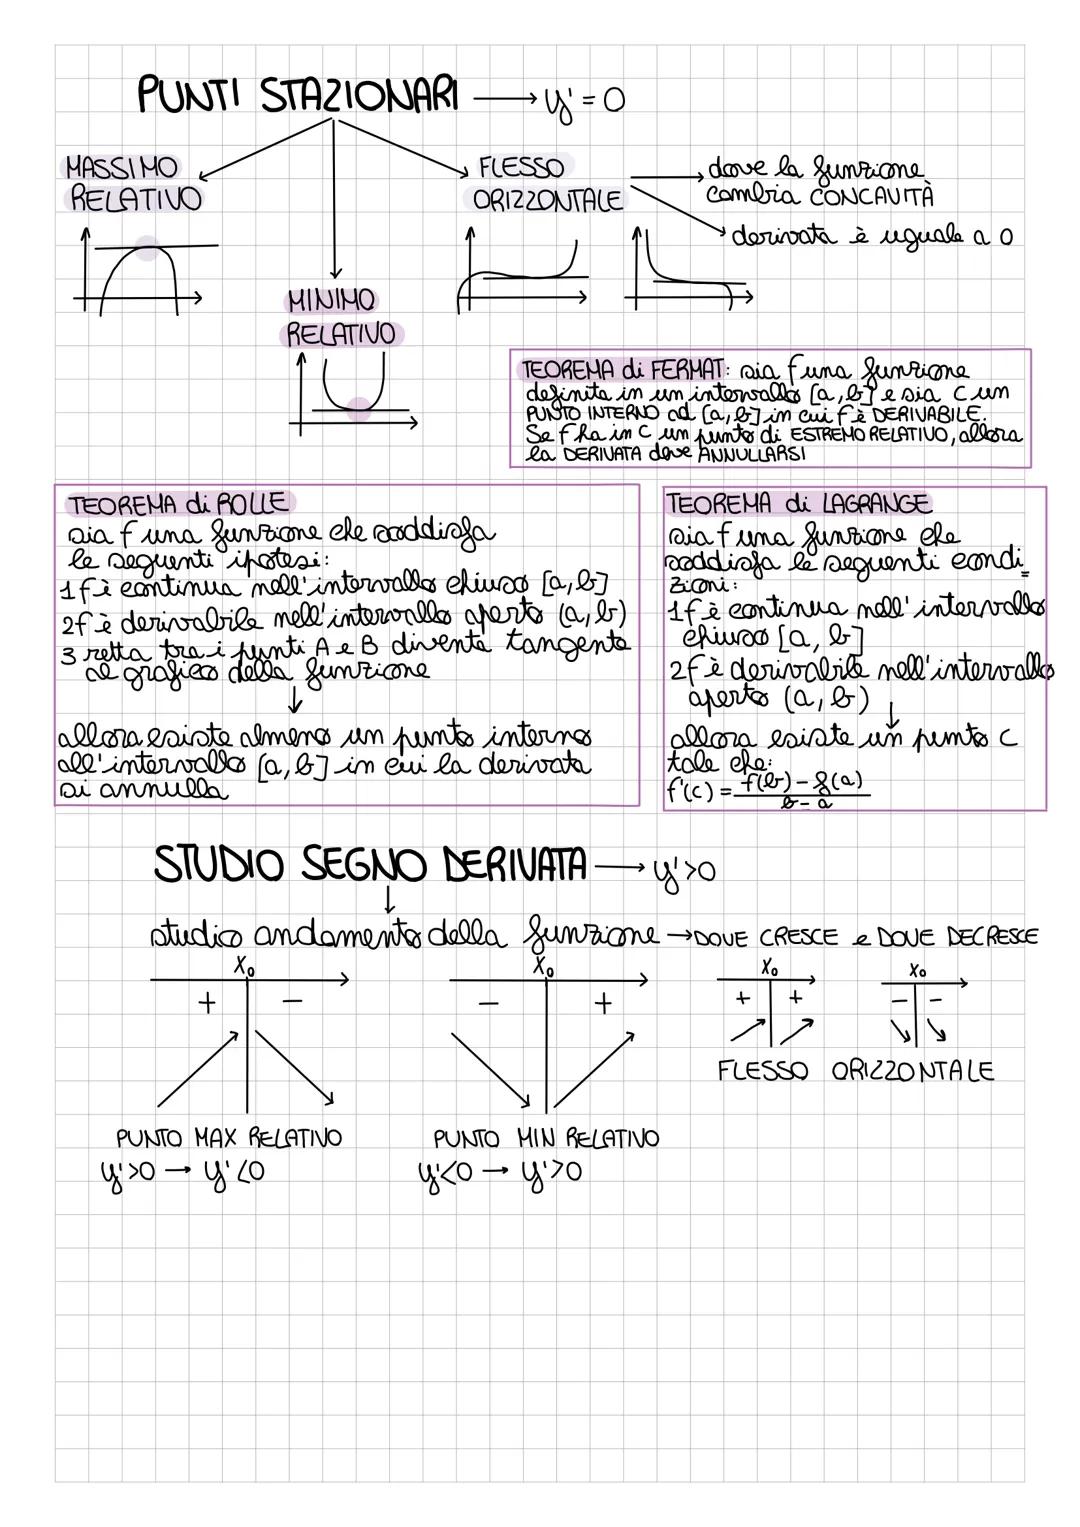 PUNTI STAZIONARI → y' = 0
MASSIMO
RELATIVO
FLESSO
ORIZZONTALE
dove la funzione
cambia CONCAVITÀ
derivata è uguale a 0
MINIMO
RELATIVO
TEOREMA di FERMAT: sia f una funzione
definita in un intervallo [a, b] e sia C un
PUNTO INTERNO ad [a, b] in cui f è DERIVABILE.
Se f ha in C un punto di ESTREMO RELATIVO, allora
la DERIVATA deve ANNULLARSI
TEOREMA di ROLLE
sia f una funzione che soddisfa
le seguenti ipotesi:
1 f è continua nell'intervallo chiuso [a, b]
2 f è derivabile nell'intervallo aperto (a, b)
3 retta tra i punti A e B diventa tangente
al grafico della funzione
↓
allora esiste almeno un punto interno
all'intervallo [a, b] in cui la derivata
si annulla
TEOREMA di LAGRANGE
sia f una funzione che
soddisfa le seguenti condi_
zioni:
1 f è continua nell'intervallo
chiuso [a, b]
2 f è derivabile nell'intervallo
aperto (a, b) ↓
allora esiste un punto c
tale che:
f'(c) = f(b) - f(a)
b - a
STUDIO SEGNO DERIVATA → y'>0
↓
studio andamento della funzione → DOVE CRESCE e DOVE DECRESCE
X₀ X₀ X₀ X₀
+ − − + + + − −
FLESSO ORIZZONTALE
PUNTO MAX RELATIVO
y'>0 → y'<0
PUNTO MIN RELATIVO
y'<0 → y'>0